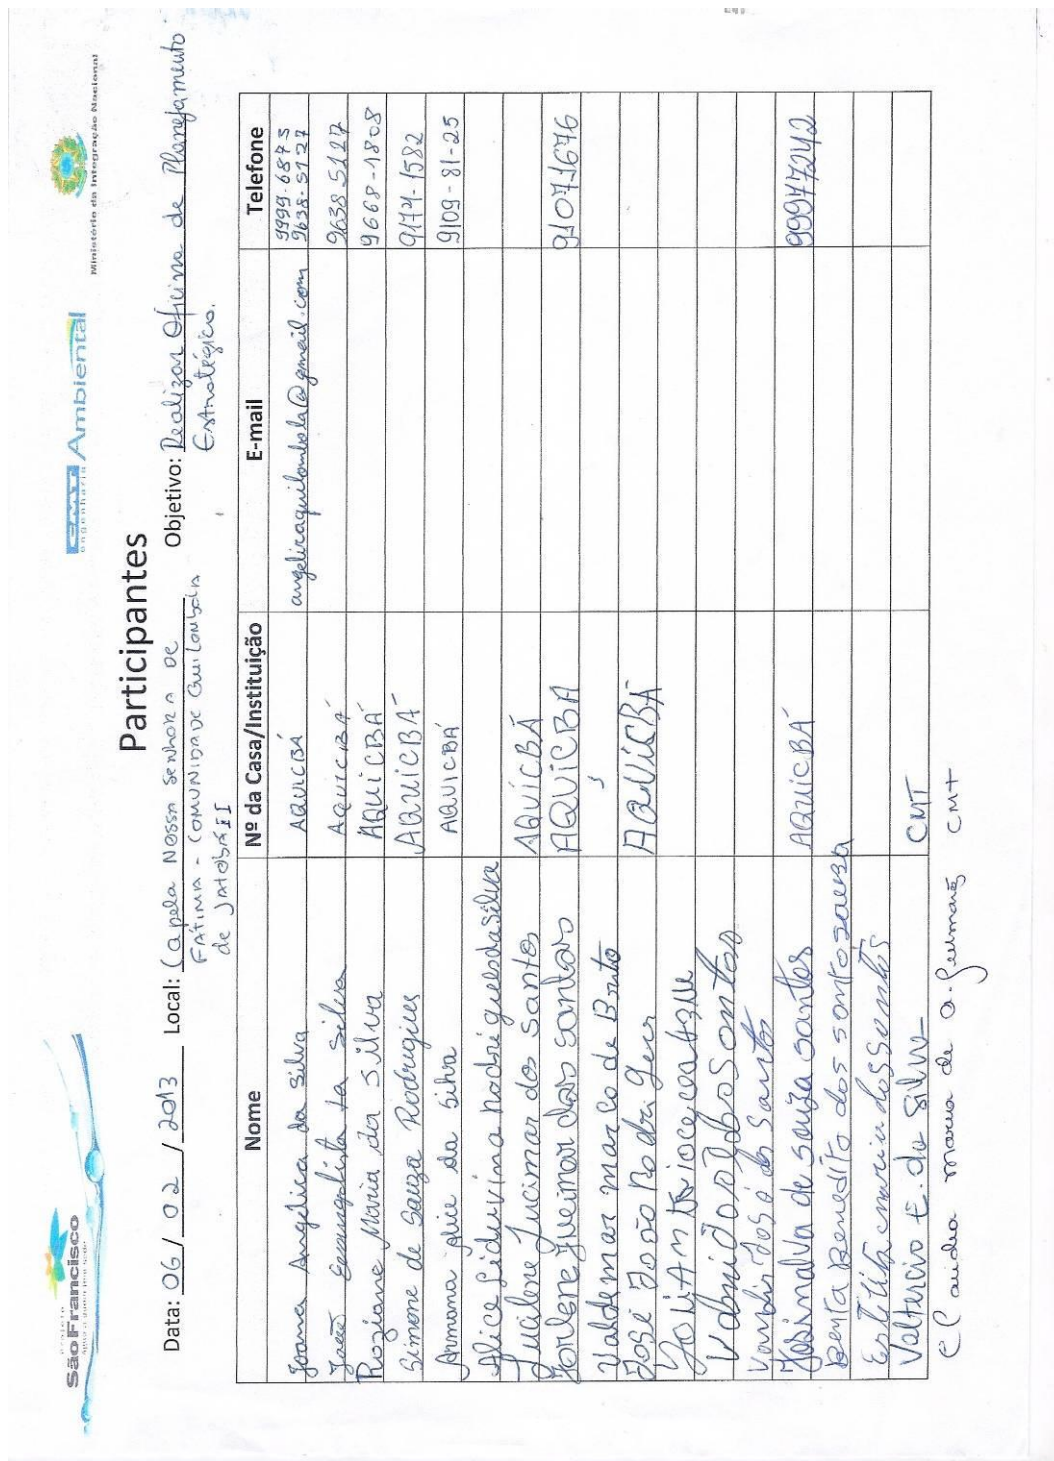 Projeto
São Francisco
água a quem tem sede
CMT Ambiental
engenharia
Ministério da Integração Nacional
Participantes
Data: 06 / 02 / 2013 Local: Capela Nossa Senhora de Objetivo: Realizar Oficina de Planejamento
Fátima - Comunidade Quilombola Estratégico.
de Jatobá II
Nome Nº da Casa/Instituição E-mail Telefone
Joana Angélica da Silva AQUICBÁ angelicaquilombola@gmail.com 9999-6873
9638-5127
João Evangelista da Silva AQUICBÁ 9638 5127
Roziane Maria da Silva AQUICBÁ 9668-1808
Simone de Souza Rodrigues AQUICBÁ 9174-1582
Armana Alice da Silva AQUICBÁ 9109-81-25
Alice Liduvina Rodrigues da Silva
Lucilene Lucimar dos Santos AQUÍCBÁ
Jorlene Jucimar dos Santos AQUICBA 91071676
Valdemar marco de Brito
José João Rodriger AQUICBÁ
Valmido dos Santos
José do Santos
Josinalva de souza santos AQUICBÁ 99977242
Benta Benedito dos santo souza
Estelita maria dos Santos
Valtercio E. da Silva CMT
Claudia maria de O. Guimarães CMT